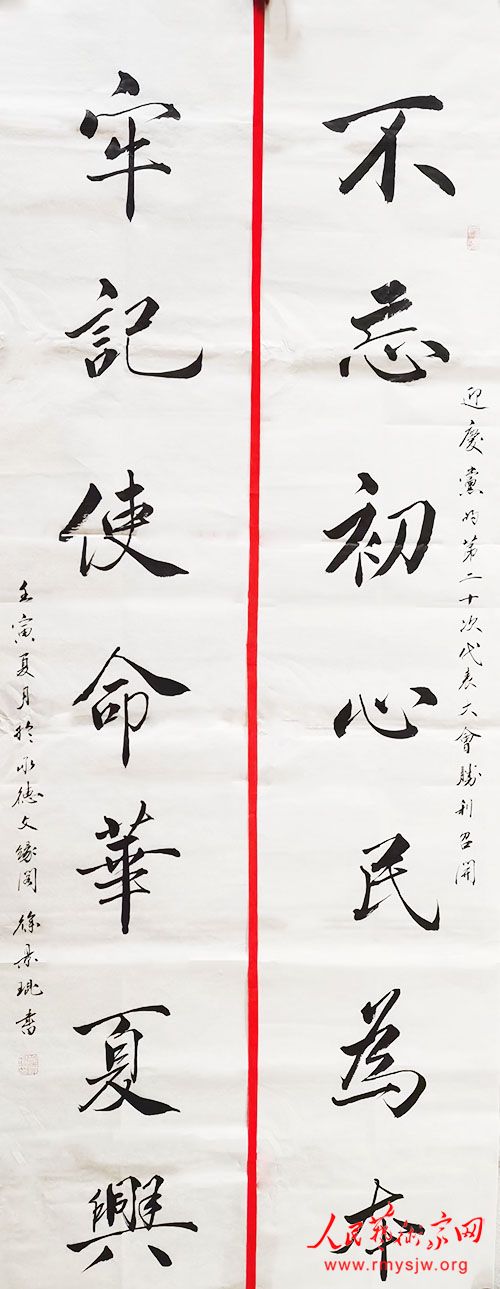 迎慶黨的第二十次代表大會勝利召開
不忘初心民為本
牢記使命華夏興
壬寅夏月於承德文緣閣 徐書
人民藝術家网
www.rmysjw.org